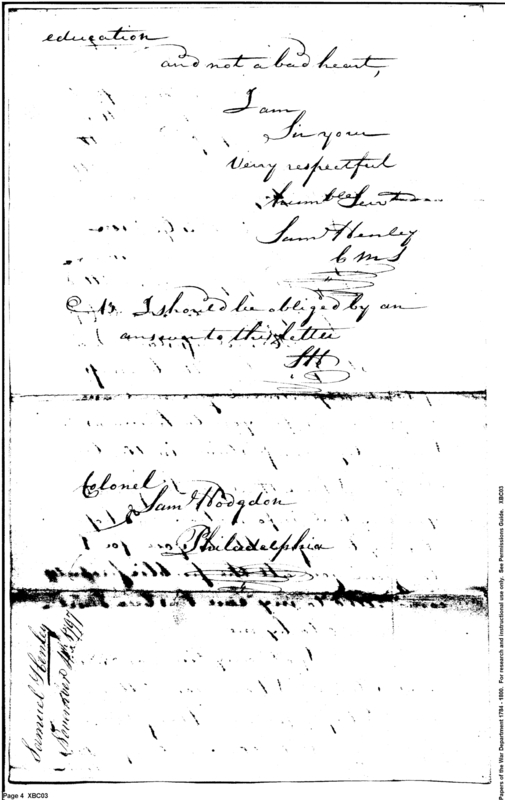 education
and not a bad heart,
I am
Sir your
Very respectful
humble Servt
Saml Henley
C M S
N. I should be obliged by an
answer to this letter
SH
Colonel
Saml Hodgdon
Philadelphia
Samuel Henley
1797
Page 4 XBC03
Papers of the War Department 1784 - 1800. For research and instructional use only. See Permissions Guide. XBC03